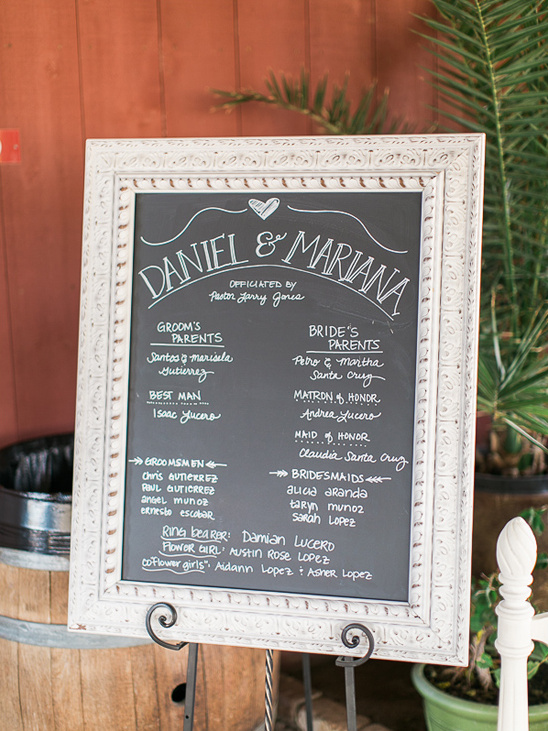 DANIEL & MARIANA
OFFICIATED BY
Pastor Larry Jones
GROOM'S
PARENTS
Santos & Marisela
Gutierrez
BEST MAN
Isaac Lucero
GROOMSMEN
Chris GUTIERREZ
PAUL GUTIERREZ
angel munoz
ernesto escobar
BRIDE'S
PARENTS
Petro & Martha
Santa Cruz
MATRON of HONOR
Andrea Lucero
MAID of HONOR
Claudia Santa Cruz
BRIDESMAIDS
alicia aranda
taryn munoz
sarah lopez
Ring bearer: Damian LUCERO
Flower Girl: Austin Rose Lopez
"coFlower girls": Aidann Lopez & Asher Lopez